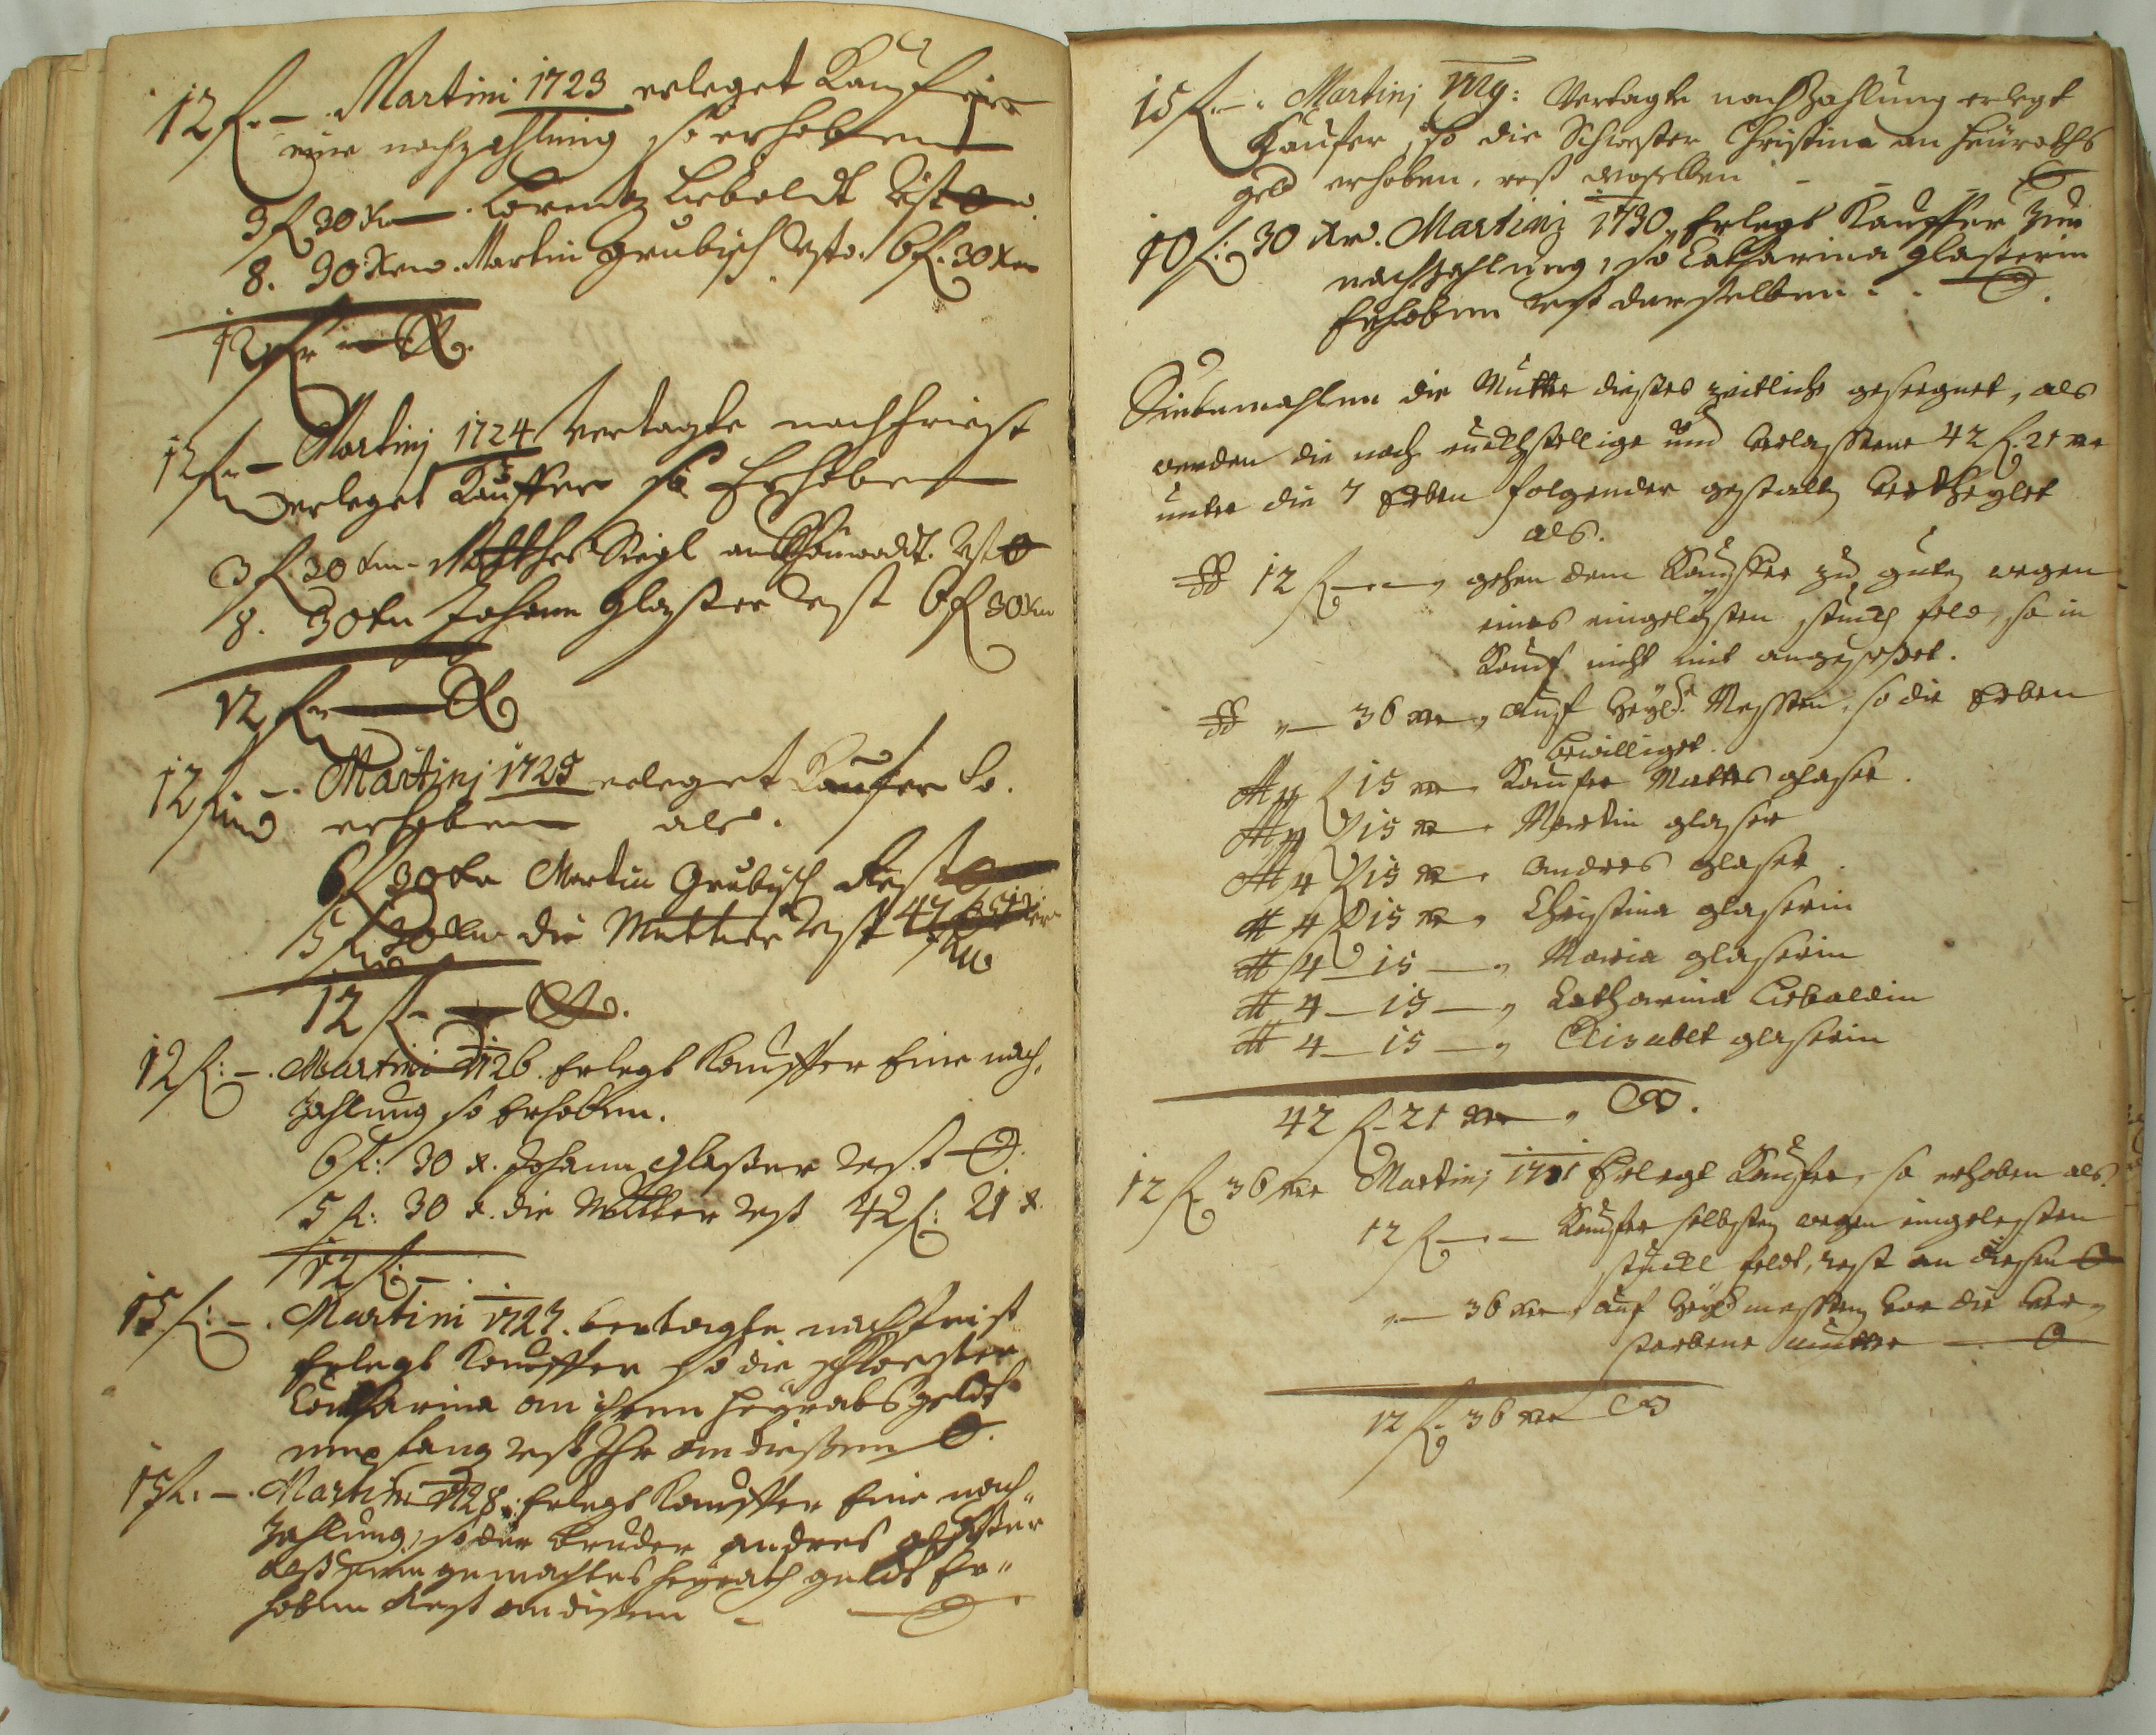 12 f. — Martini 1723 erleget Kauffer
eine nachzahlung so erhoben
3 f 30 Kr — Lorentz Lieboldt Rest 0
8. 30 Kr. Martin Grubisch Resto. 6 f. 30 Kr
12 f — 
12 f — Martinj 1724 vertagte nachfriest
erleget Kauffer so Erhoben
3 f 30 Kr — Matthes Siegl Rest 0
8. 30 Kr Johann Glasser Rest 6 f 30 Kr
12 f —
12 f. — Martinj 1725 erleget Kaufer so.
und erhoben als.
6 f 30 Kr Martin Grubisch Rest 0
5 f 30 Kr die Mutter Rest 47 f
12 f —
12 f: — Martini 1726. Erlegt Kauffer Eine nach,
zahlung so Erhoben.
6 f: 30 x. Johann Glasser Rest 0.
5 f: 30 x. die Mutter Rest 42 f: 21 x.
12 f: —
15 f: — Martini 1727. vertagte nachfrist
Erlegt Kauffer so die schwester
Catharina an ihrem Heyrats geldt
empfang Rest Ihr an diessem 0.
15 f. — Martini 1728: Erlegt Kauffer Eine nach"
zahlung, so der Bruder andres glasser
gemachtes heyrath geldt Er"
hoben Rest an dissem — 0
15 f. — Martinj 1729: Vertagte nachzahlung erlegt
Kaufer, so die Schwester Christina an heuraths
geld erhoben, rest derselben — — 0
10 f: 30 Kr. Martini 1730. Erlegt Kauffer Zur
nachzahlung, so Catharina glasserin
Erhoben rest derselben . . 0.
Sintemahlen die Mutter diesses zeitliche geseegnet, als
werden die noch rückstellige und verlassene 42 f. 21 xr
unter die 7 Erben folgender gestalt vertheylet
als.
12 f — gehen dem Kauffer zu gutt wegen
eines eingelösten stuck feld, so in
Kauf nicht mit angesetzet.
— 36 xr, auf Heyl. Messen, so die Erben
bewilliget.
4 f 15 xr Kaufer Mattes glaser.
4 f 15 xr. Martin glaser
4 f 15 xr. Andres glaser.
4 f 15 xr, Christina glaserin
4 — 15 —, Maria glaserin
4 — 15 —, Catharina Liebaldin
4 — 15 —, Elisabet glaserin
42 f 21 xr
12 f 36 xr Martinj 1731 Erlegt Kaufer, so erhoben als
12 f — Kaufer selbsten wegen eingelesten
stuckl feldt, rest an diesen 0
— 36 xr, auf Heyl. messen vor die ver,
storbene mutter — 0
12 f. 36 xr